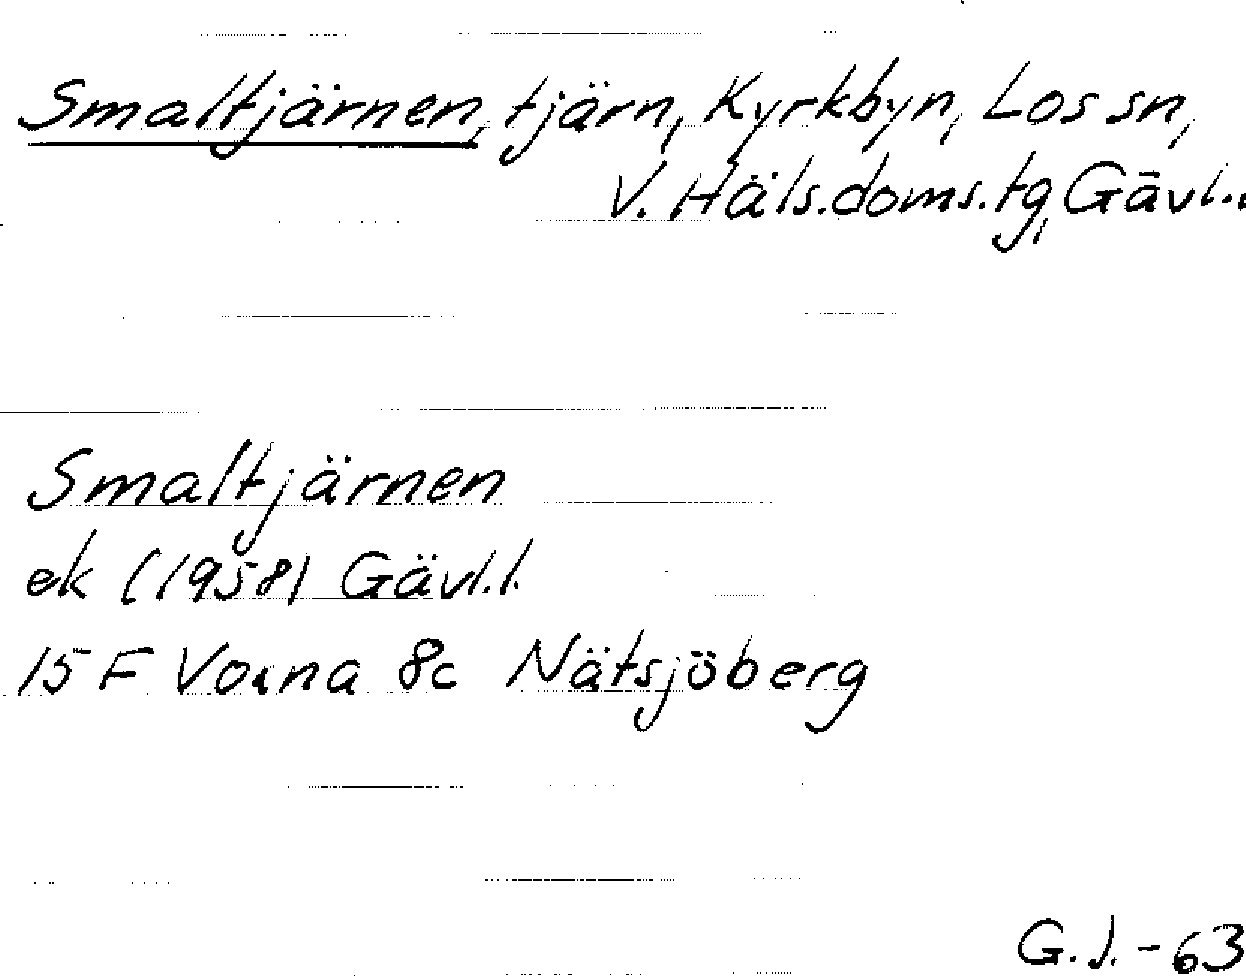 Smaltjärnen, tjärn, Kyrkbyn, Los sn,
V. Häls.doms.tg, Gävl.l.
Smaltjärnen
ek (1958) Gävl.l.
15 F Voxna 8c Nätsjöberg
G.J.-63